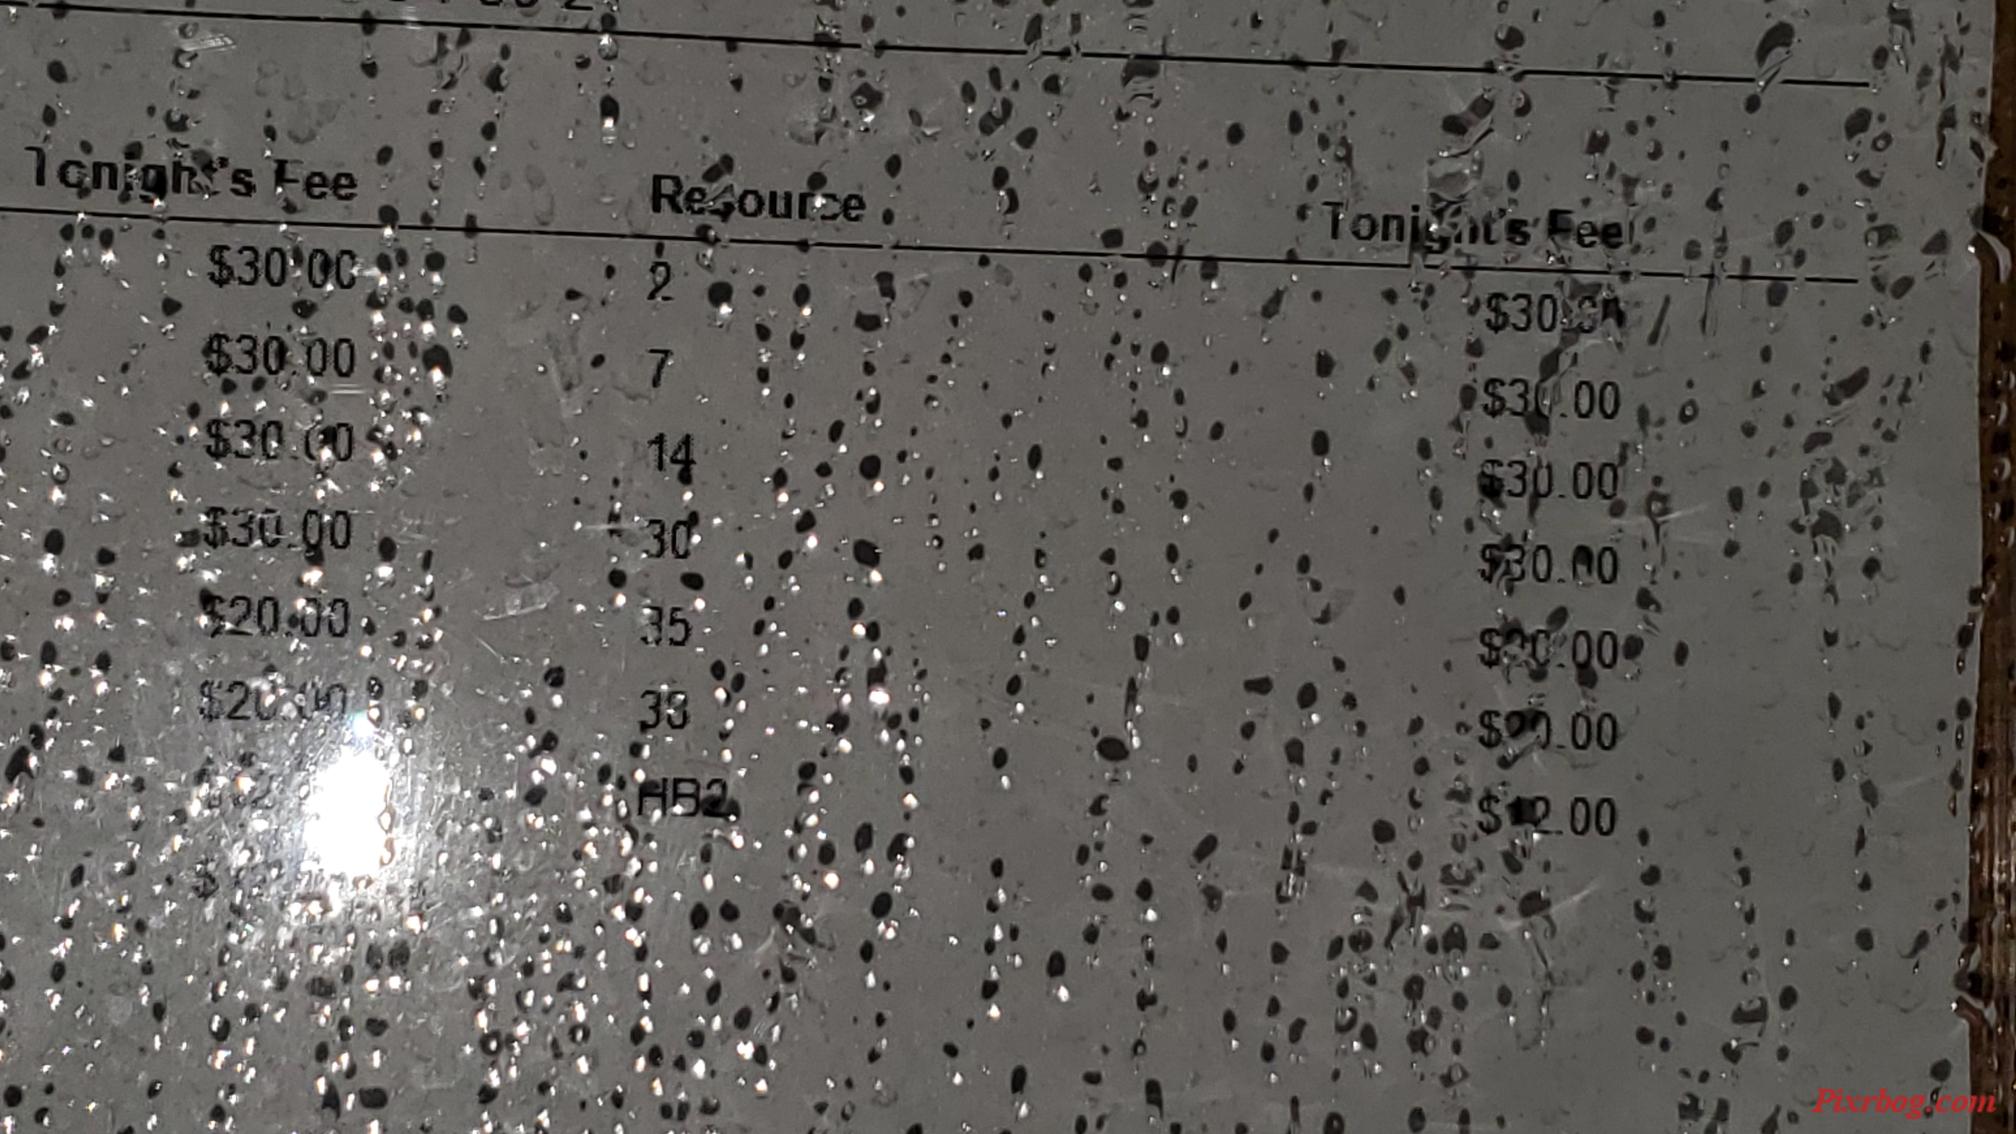 Tonight's Fee Resource Tonight's Fee
$30.00 2 $30.00
$30.00 7 $30.00
$30.00 14 $30.00
$30.00 30 $30.00
$20.00 35 $20.00
$20.00 33 $20.00
HB2 $12.00
Pixrbog.com